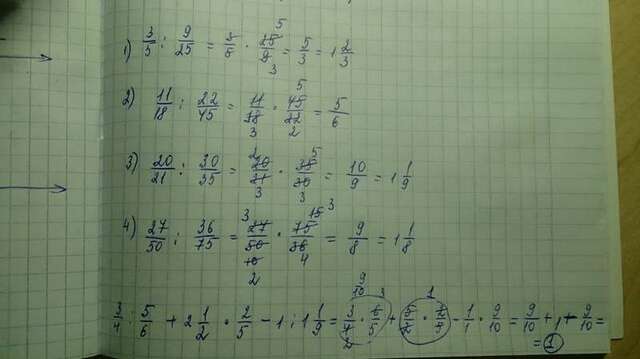 1) 3/5 : 9/25 = 3/5 · 25/9 = 5/3 = 1 2/3
2) 11/18 : 22/45 = 11/18 · 45/22 = 5/6
3) 20/21 : 30/35 = 20/21 · 35/30 = 10/9 = 1 1/9
4) 27/50 : 36/75 = 27/50 · 75/36 = 9/8 = 1 1/8
3/4 : 5/6 + 2 1/2 · 2/5 - 1 : 1 1/9 = 3/4 · 6/5 + 5/2 · 2/5 - 1/1 · 9/10 = 9/10 + 1 - 9/10 =
= 1